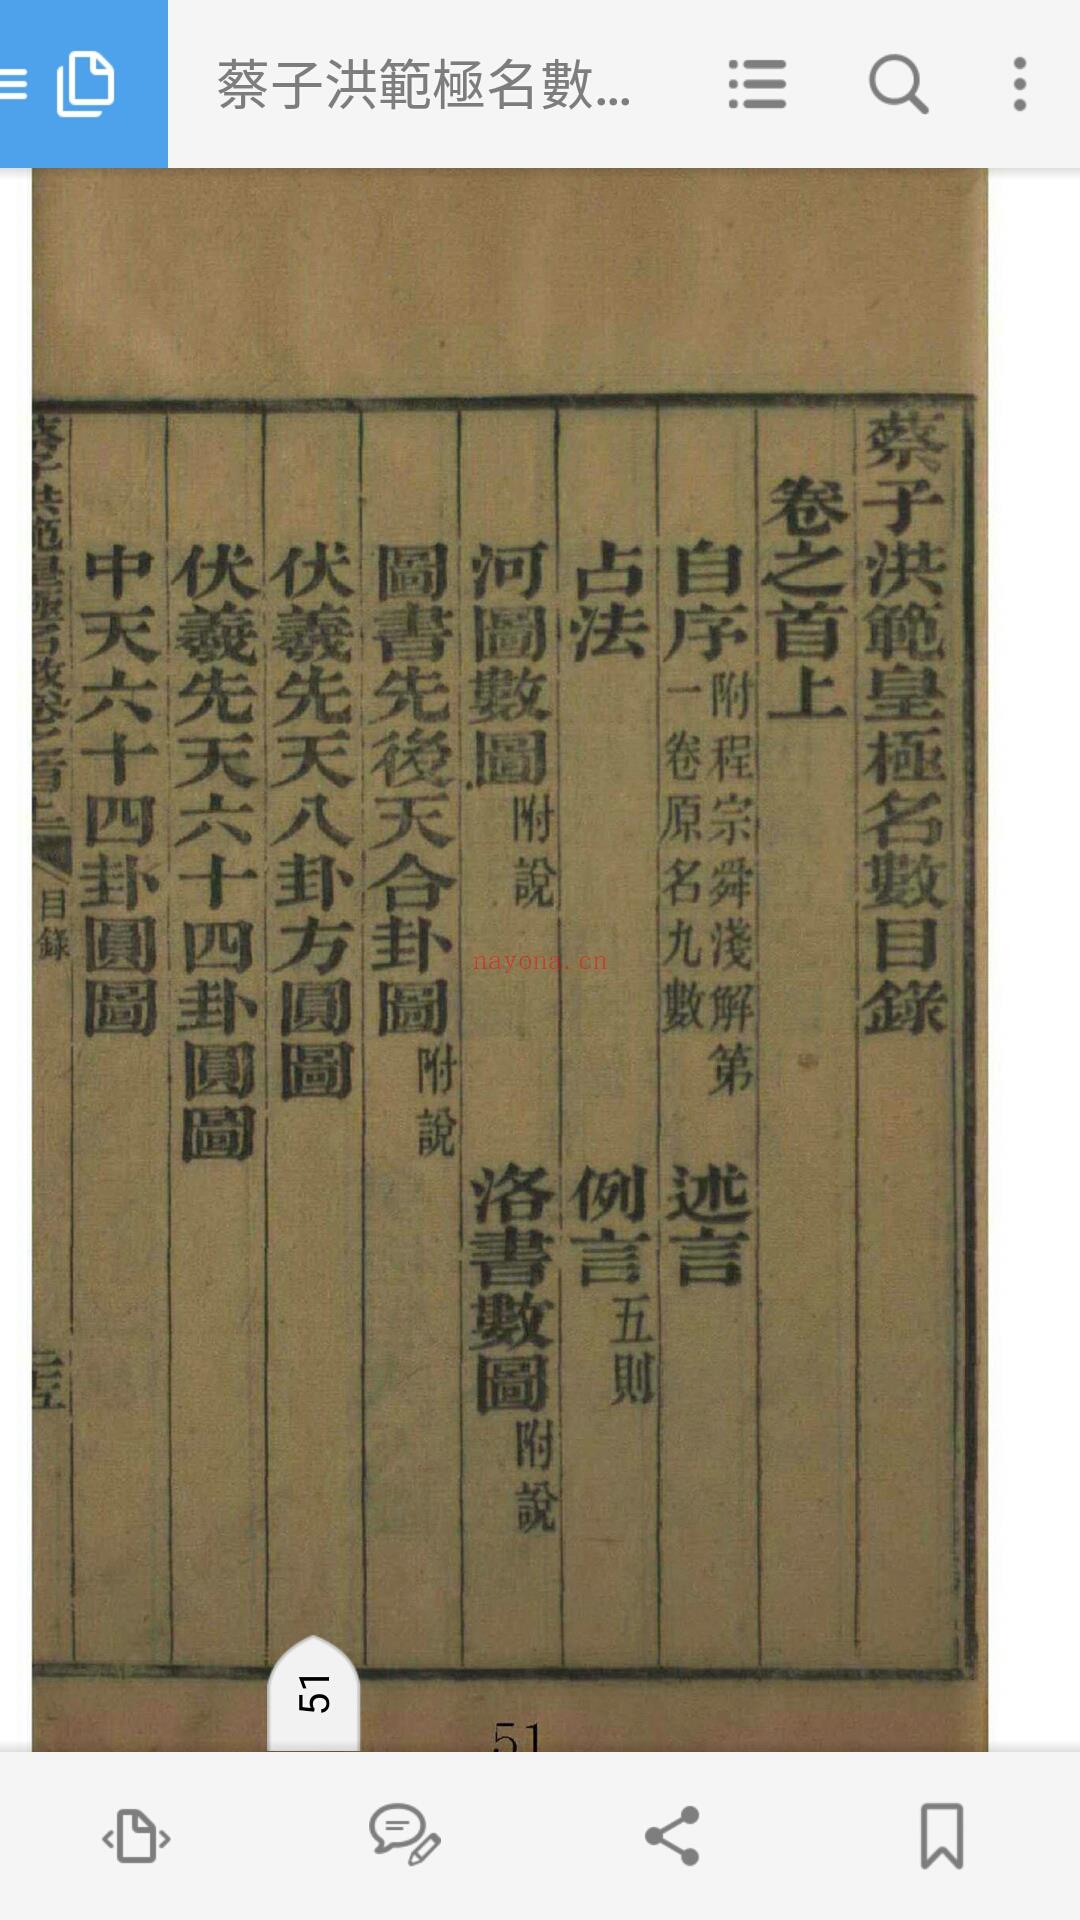 蔡子洪範極名數...
蔡子洪範皇極名數目錄
卷之首上
自序 附程宗舜淺解第一卷原名九數 述言
占法 例言 五則
河圖數圖 附說 洛書數圖 附說
圖書先後天合卦圖 附說
伏羲先天八卦方圓圖
伏羲先天六十四卦圓圖
中天六十四卦圓圖
蔡子洪範皇極名數卷之首上
目錄
nayona.cn
51
51